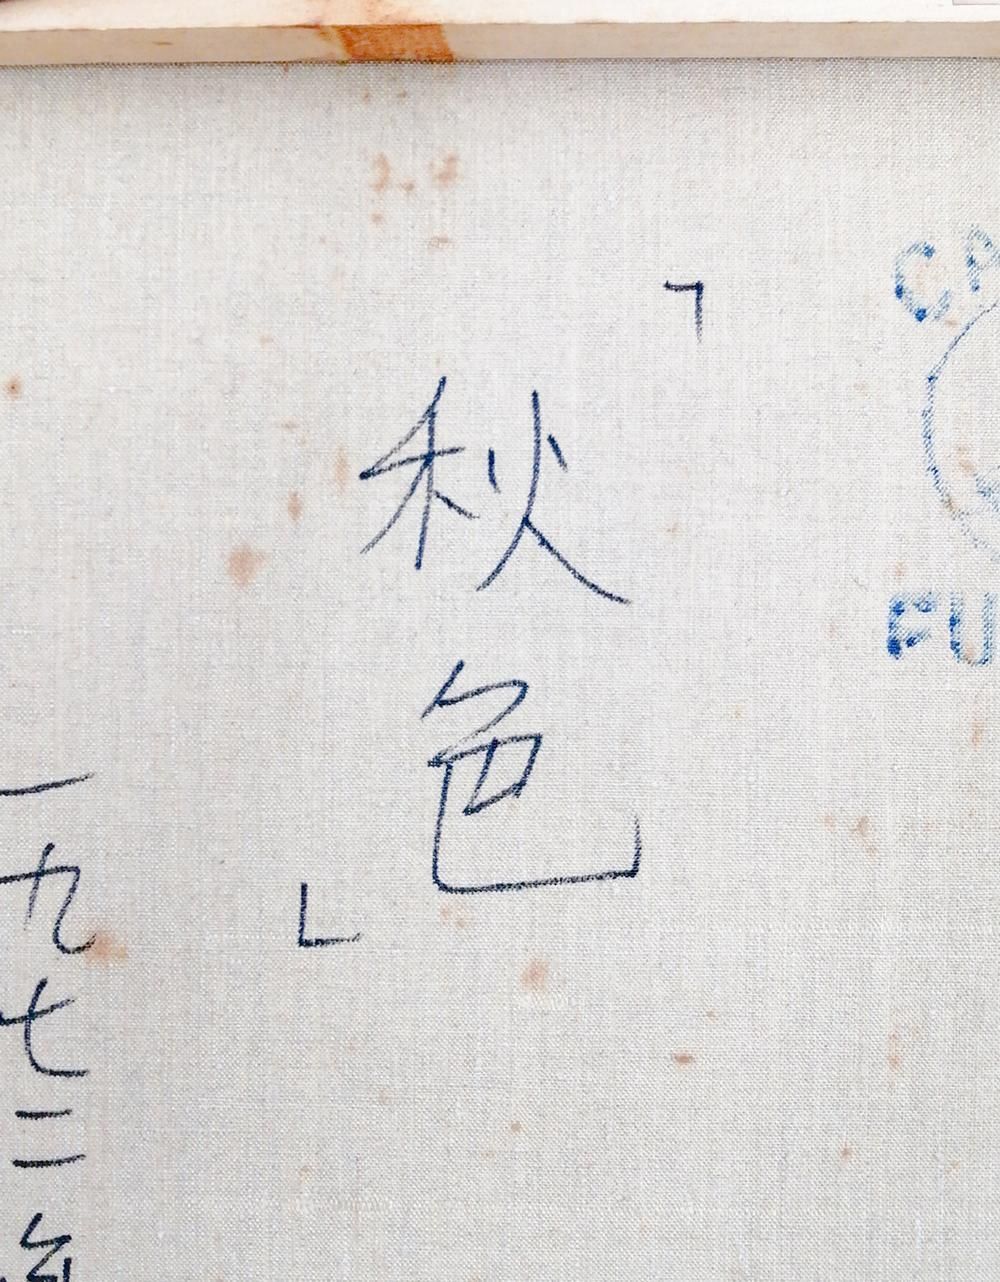 「秋色」
一九七二年
CP
FU